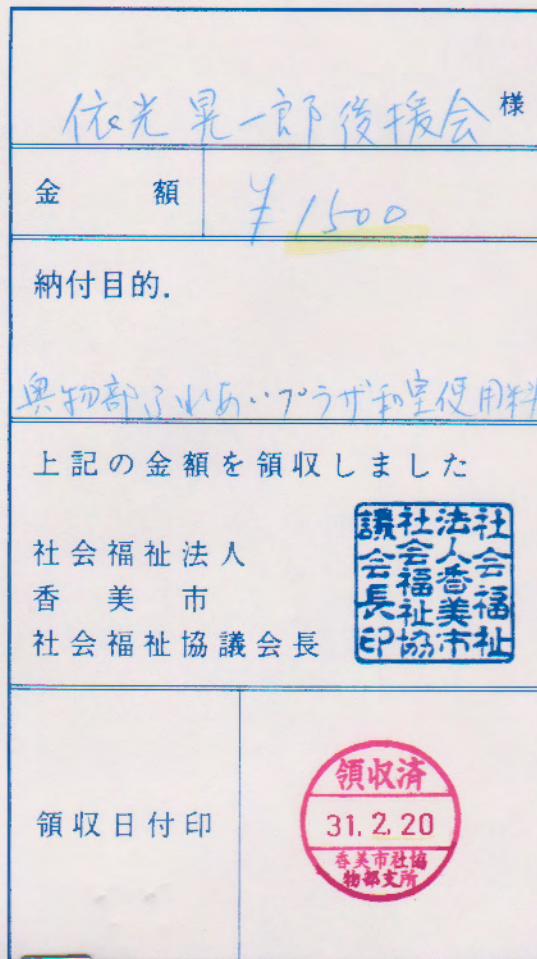 依光晃一郎後援会 様
金 額 ¥1500
納付目的.
奥物部ふれあいプラザ和室使用料
上記の金額を領収しました
社会福祉法人
香美市
社会福祉協議会長
社会福祉
法人香美市
社会福祉協
議会長印
領収日付印
領収済
31.2.20
香美市社協
物部支所